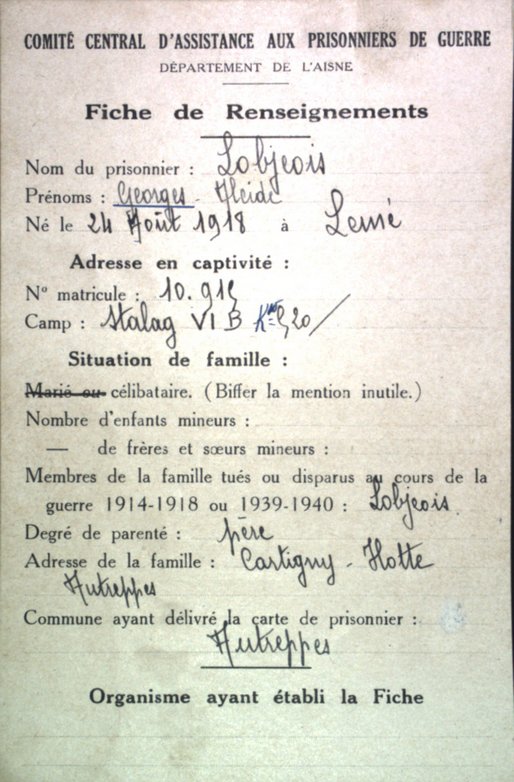 COMITÉ CENTRAL D'ASSISTANCE AUX PRISONNIERS DE GUERRE
DÉPARTEMENT DE L'AISNE
Fiche de Renseignements
Nom du prisonnier : Lobjeois
Prénoms : Georges - Alcide
Né le 24 Août 1918 à Lemé
Adresse en captivité :
N° matricule : 10.915
Camp : Stalag VI B
Situation de famille :
Marié ou célibataire. (Biffer la mention inutile.)
Nombre d'enfants mineurs :
— de frères et sœurs mineurs :
Membres de la famille tués ou disparus au cours de la
guerre 1914-1918 ou 1939-1940 : Lobjeois.
Degré de parenté : père
Adresse de la famille : Cartigny - Hotte
Autreppes
Commune ayant délivré la carte de prisonnier :
Autreppes
Organisme ayant établi la Fiche